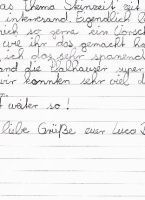 as Thema Steinzeit gib
interessant. Eigendlich
uch so gerne ein Vorsch
wie ihr das gemacht ha
ch das sehr spanend
and die Kalhäuser super
wir konnten sehr viel d
t weiter so!
liebe Grüße euer Luca